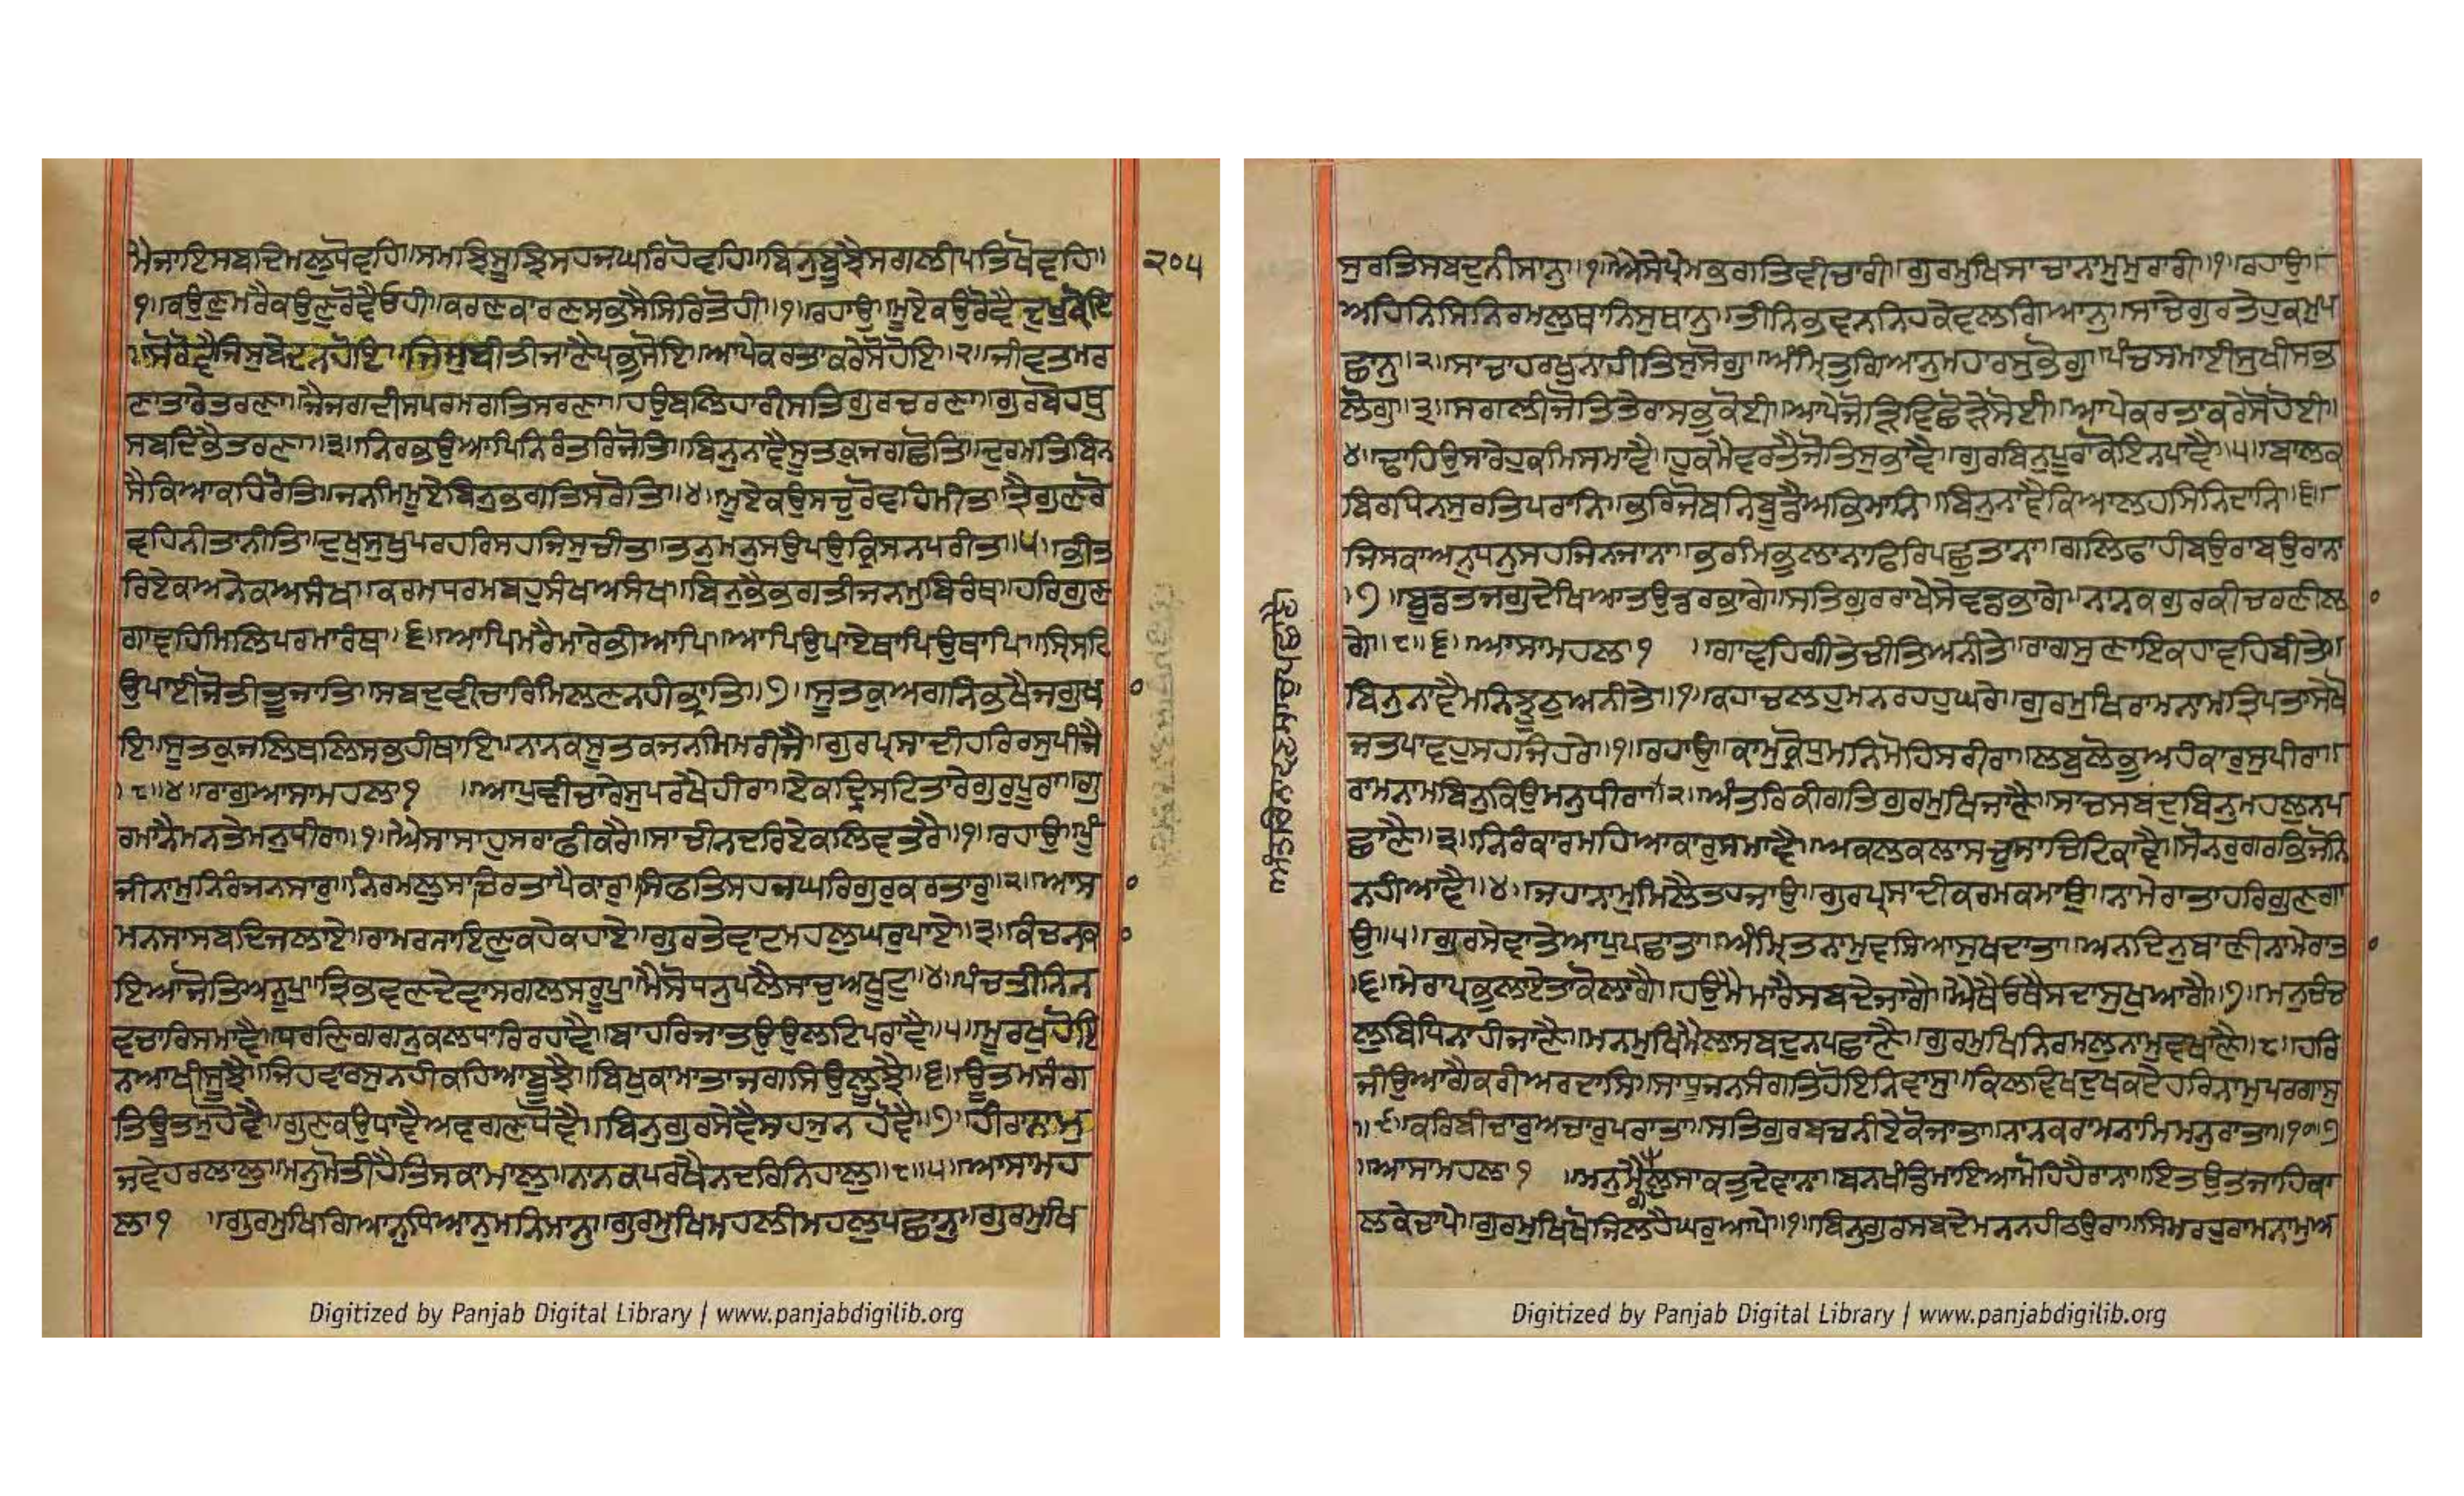 ਮੈਜਾਇਸਬਦਿਮਲੁਧੋਵਹਿ॥ਸਮਝਿਸੂਝਿਸਹਜਘਰਿਹੋਵਹਿ॥ਬਿਨੁਬੂਝੈਸਗਲੀਪਤਿਖੋਵਹਿ॥ ੨੦੫
੧॥ਕਉਣੁਮਰੈਕਉਣੁਰੋਵੈਓਹੀ॥ਕਰਣਕਾਰਣਸਭਸੈਸਿਰਿਤੋਹੀ॥੧॥ਰਹਾਉ॥ਮੂਏਕਉਰੋਵੈਦੁਖੁਕੋਇ
॥ਸੋਰੋਵੈਜਿਸੁਬੇਦਨਹੋਇ॥ਜਿਸੁਬੀਤੀਜਾਣੈਪ੍ਰਭਸੋਇ॥ਆਪੇਕਰਤਾਕਰੇਸੋਹੋਇ॥੨॥ਜੀਵਤਮਰ
ਣਾਤਾਰੇਤਰਣਾ॥ਜੈਜਗਦੀਸਪਰਮਗਤਿਸਰਣਾ॥ਹਉਬਲਿਹਾਰੀਸਤਿਗੁਰਚਰਣਾ॥ਗੁਰਬੋਹਿਥੁ
ਸਬਦਿਭੈਤਰਣਾ॥੩॥ਨਿਰਭਉਆਪਿਨਿਰੰਤਰਿਜੋਤਿ॥ਬਿਨੁਨਾਵੈਸੂਤਕੁਜਗਛੋਤਿ॥ਦੁਰਮਤਿਬਿਨ
ਸੈਕਿਆਕਹਿਰੋਤਿ॥ਜਨਮਿਮੂਏਬਿਨੁਭਗਤਿਸਰੋਤਿ॥੪॥ਮੂਏਕਉਸਚੁਰੋਵਹਿਮੀਤਾ॥ਤ੍ਰੈਗੁਣਰੋ
ਵਹਿਨੀਤਾਨੀਤਿ॥ਦੁਖੁਸੁਖੁਪਰਹਰਿਸਹਜਿਸੁਚੀਤਾ॥ਤਨੁਮਨੁਸਉਪਉਕ੍ਰਿਸਨਪਰੀਤਾ॥੫॥ਭੀਤ
ਰਿਏਕਅਨੇਕਅਸੰਖਾ॥ਕਰਮਧਰਮਬਹੁਸੰਖਅਸੰਖਾ॥ਬਿਨੁਭੈਭਗਤੀਜਨਮੁਬਿਰੰਥਾ॥ਹਰਿਗੁਣ
ਗਾਵਹਿਮਿਲਿਪਰਮਾਰੰਥਾ॥੬॥ਆਪਿਮਰੈਮਾਰੇਭੀਆਪਿ॥ਆਪਿਉਪਾਏਥਾਪਿਉਥਾਪਿ॥ਸ੍ਰਿਸਟਿ
ਉਪਾਈਜੋਤੀਤੂਜਾਤਿ॥ਸਬਦੁਵੀਚਾਰਿਮਿਲਣੁਨਹੀਭ੍ਰਾਤਿ॥੭॥ਸੂਤਕੁਅਗਨਿਭਖੈਜਗੁਖ
ਇ॥ਸੂਤਕੁਜਲਿਥਲਿਸਭਹੀਥਾਇ॥ਨਾਨਕਸੂਤਕਜਨਮਿਮਰੀਜੈ॥ਗੁਰਪ੍ਰਸਾਦੀਹਰਿਰਸੁਪੀਜੈ
॥੮॥੪॥ਰਾਗੁਆਸਾਮਹਲਾ੧ ॥ਆਪੁਵੀਚਾਰੇਸੁਪਰਖੇਹੀਰਾ॥ਏਕਦ੍ਰਿਸਟਿਤਾਰੇਗੁਰਪੂਰਾ॥ਗੁ
ਰਮਾਨੈਮਨਤੇਮਨੁਧੀਰਾ॥੧॥ਐਸਾਸਾਹੁਸਰਾਫੀਕਰੈ॥ਸਾਚੀਨਦਰਿਏਕਲਿਵਤਰੈ॥੧॥ਰਹਾਉ॥ਪੂੰ
ਜੀਨਾਮੁਨਿਰੰਜਨਸਾਰੁ॥ਨਿਰਮਲੁਸਾਚਿਰਤਾਪੈਕਾਰੁ॥ਸਿਫਤਿਸਹਜਘਰਿਗੁਰੁਕਰਤਾਰੁ॥੨॥ਆਸ
ਮਨਸਾਸਬਦਿਜਲਾਏ॥ਰਾਮਰਨਾਇਣੁਕਹੈਕਹਾਏ॥ਗੁਰਤੇਵਾਟਮਹਲੁਘਰੁਪਾਏ॥੩॥ਕੰਚਨਕ
ਇਆਜੋਤਿਅਨੂਪੁ॥ਤ੍ਰਿਭਵਣਦੇਵਾਸਗਲਸਰੂਪੁ॥ਮੈਸੋਧਨੁਪਲੈਸਾਚੁਅਖੂਟੁ॥੪॥ਪੰਚਤੀਨਿਨ
ਵਚਾਰਿਸਮਾਵੈ॥ਧਰਣਿਗਗਨੁਕਲਧਾਰਿਰਹਾਵੈ॥ਬਾਹਰਿਜਾਤਉਉਲਟਿਪਰਾਵੈ॥੫॥ਮੂਰਖੁਹੋਇ
ਨਆਖੀਸੂਝੈ॥ਜਿਹਵਾਰਸੁਨਹੀਕਹਿਆਬੂਝੈ॥ਬਿਖੁਕਾਮਾਤਾਜਗਸਿਉਲੂਝੈ॥੬॥ਊਤਮਸੰਗ
ਤਿਊਤਮੁਹੋਵੈ॥ਗੁਣਕਉਧਾਵੈਅਵਗਣਧੋਵੈ॥ਬਿਨੁਗੁਰਸੇਵੈਸਹਜੁਨਹੋਵੈ॥੭॥ਹੀਰਾਨਾਮੁ
ਜਵੇਹਰਲਾਲੁ॥ਮਨੁਮੋਤੀਹੈਤਿਸਕਾਮਾਲੁ॥ਨਾਨਕਪਰਖੈਨਦਰਿਨਿਹਾਲੁ॥੮॥੫॥ਆਸਾਮਹ
ਲਾ੧ ॥ਗੁਰਮੁਖਿਗਿਆਨੁਧਿਆਨੁਮਨਿਮਾਨੁ॥ਗੁਰਮੁਖਿਮਹਲੀਮਹਲੁਪਛਾਨੁ॥ਗੁਰਮੁਖਿ
Digitized by Panjab Digital Library | www.panjabdigilib.org
ਸੁਰਤਿਸਬਦੁਨੀਸਾਨੁ॥੧॥ਐਸੇਪ੍ਰੇਮਭਗਤਿਵੀਚਾਰੀ॥ਗੁਰਮੁਖਿਸਾਚਾਨਾਮੁਮੁਰਾਰੀ॥੧॥ਰਹਾਉ॥
ਅਹਿਨਿਸਿਨਿਰਮਲੁਥਾਨਿਸੁਥਾਨੁ॥ਤੀਨਿਭਵਨਨਿਹਕੇਵਲਗਿਆਨੁ॥ਸਾਚੇਗੁਰਤੇਹੁਕਮੁਪ
ਛਾਨੁ॥੨॥ਸਾਚਾਹਰਖੁਨਾਹੀਤਿਸੁਸੋਗੁ॥ਅੰਮ੍ਰਿਤੁਗਿਆਨੁਮਹਾਰਸੁਭੋਗੁ॥ਪੰਚਸਮਾਈਸੁਖੀਸਭ
ਲੋਗੁ॥੩॥ਸਗਲੀਜੋਤਿਤੇਰਾਸਭੁਕੋਈ॥ਆਪੇਜੋੜਿਵਿਛੋੜੇਸੋਈ॥ਆਪੇਕਰਤਾਕਰੇਸੋਹੋਈ॥
੪॥ਢਾਹਿਉਸਾਰੇਹੁਕਮਿਸਮਾਵੈ॥ਹੁਕਮੋਵਰਤੈਜੋਤਿਸੁਭਾਵੈ॥ਗੁਰਬਿਨੁਪੂਰਾਕੋਇਨਪਾਵੈ॥੫॥ਬਾਲਕ
ਬਿਰਧਿਨਸੁਰਤਿਪਰਾਨਿ॥ਭਰਿਜੋਬਨਿਬੂਡੈਅਭਿਮਾਨਿ॥ਬਿਨੁਨਾਵੈਕਿਆਲਹਸਿਨਿਦਾਨਿ॥੬॥
ਜਿਸਕਾਅਨੁਧਨੁਸਹਜਿਨਜਾਨਾ॥ਭਰਮਿਭੁਲਾਨਾਫਿਰਿਪਛੁਤਾਨਾ॥ਗਲਿਫਾਹੀਬਉਰਾਬਉਰਾਨਾ
॥੭॥ਬੂਡਤਜਗੁਦੇਖਿਆਤਉਡਰਭਾਗੇ॥ਸਤਿਗੁਰਰਾਖੇਸੇਵਡਭਾਗੇ॥ਨਾਨਕਗੁਰਕੀਚਰਣੀਲ
ਗੇ॥੮॥੬॥ਆਸਾਮਹਲਾ੧ ॥ਗਾਵਹਿਗੀਤੇਚੀਤਿਅਨੀਤੇ॥ਰਾਗਸੁਣਾਇਕਹਾਵਹਿਬੀਤੇ॥
ਬਿਨੁਨਾਵੈਮਨਿਝੂਠੁਅਨੀਤੇ॥੧॥ਕਹਾਚਲਹੁਮਨਰਹਹੁਘਰੇ॥ਗੁਰਮੁਖਿਰਾਮਨਾਮਤ੍ਰਿਪਤਾਸੇਖੋ
ਜਤਪਾਵਹੁਸਹਜਿਹਰੇ॥੧॥ਰਹਾਉ॥ਕਾਮੁਕ੍ਰੋਧੁਮਨਿਮੋਹਿਸਰੀਰਾ॥ਲਬੁਲੋਭੁਅਹੰਕਾਰੁਸੁਪੀਰਾ॥
ਰਾਮਨਾਮਬਿਨੁਕਿਉਮਨੁਧੀਰਾ॥੨॥ਅੰਤਰਿਕੀਗਤਿਗੁਰਮੁਖਿਜਾਣੈ॥ਸਾਚਸਬਦੁਬਿਨੁਮਹਲੁਨਪ
ਛਾਣੈ॥੩॥ਨਿਰੰਕਾਰਮਹਿਆਕਾਰੁਸਮਾਵੈ॥ਅਕਲਕਲਾਸਚੁਸਾਚਿਟਿਕਾਵੈ॥ਸੋਨਰੁਗਰਭਜੋਨਿ
ਨਹੀਆਵੈ॥੪॥ਜਹਾਨਾਮੁਮਿਲੈਤਹਜਾਉ॥ਗੁਰਪ੍ਰਸਾਦੀਕਰਮਕਮਾਉ॥ਨਾਮੇਰਾਤਾਹਰਿਗੁਣਗਾ
ਉ॥੫॥ਗੁਰਸੇਵਾਤੇਆਪੁਪਛਾਤਾ॥ਅੰਮ੍ਰਿਤਨਾਮੁਵਸਿਆਸੁਖਦਾਤਾ॥ਅਨਦਿਨੁਬਾਣੀਨਾਮੇਰਾਤ
॥੬॥ਮੇਰਾਪ੍ਰਭੁਲਾਏਤਾਕੋਲਾਗੈ॥ਹਉਮੈਮਾਰੈਸਬਦੇਜਾਗੈ॥ਐਥੈਓਥੈਸਦਾਸੁਖੁਆਗੈ॥੭॥ਮਨੁਚੰਚ
ਲੁਬਿਧਿਨਾਹੀਜਾਣੈ॥ਮਨਮੁਖਿਮੈਲਾਸਬਦੁਨਪਛਾਣੈ॥ਗੁਰਮੁਖਿਨਿਰਮਲੁਨਾਮੁਵਖਾਣੈ॥੮॥ਹਰਿ
ਜੀਉਆਗੈਕਰੀਅਰਦਾਸਿ॥ਸਾਧੂਜਨਸੰਗਤਿਹੋਇਨਿਵਾਸੁ॥ਕਿਲਵਿਖਦੁਖਕਟੇਹਰਿਨਾਮੁਪਰਗਾਸੁ
॥੯॥ਕਰਿਬੀਚਾਰੁਅਚਾਰੁਪਰਾਤਾ॥ਸਤਿਗੁਰਬਚਨੀਏਕੋਜਾਤਾ॥ਨਾਨਕਰਾਮਨਾਮਿਮਨੁਰਾਤਾ॥੧੦॥੭
॥ਆਸਾਮਹਲਾ੧ ॥ਮਨੁਮੈਗਲੁਸਾਕਤੁਦੇਵਾਨਾ॥ਬਨਖੰਡਿਮਾਇਆਮੋਹਿਹੈਰਾਨਾ॥ਇਤਉਤਜਾਹਿਕਾ
ਲਕੇਚਾਪੇ॥ਗੁਰਮੁਖਿਖੋਜਿਲਹੈਘਰੁਆਪੇ॥੧॥ਬਿਨੁਗੁਰਸਬਦੈਮਨੁਨਹੀਠਉਰਾ॥ਸਿਮਰਹੁਰਾਮਨਾਮੁਅ
Digitized by Panjab Digital Library | www.panjabdigilib.org